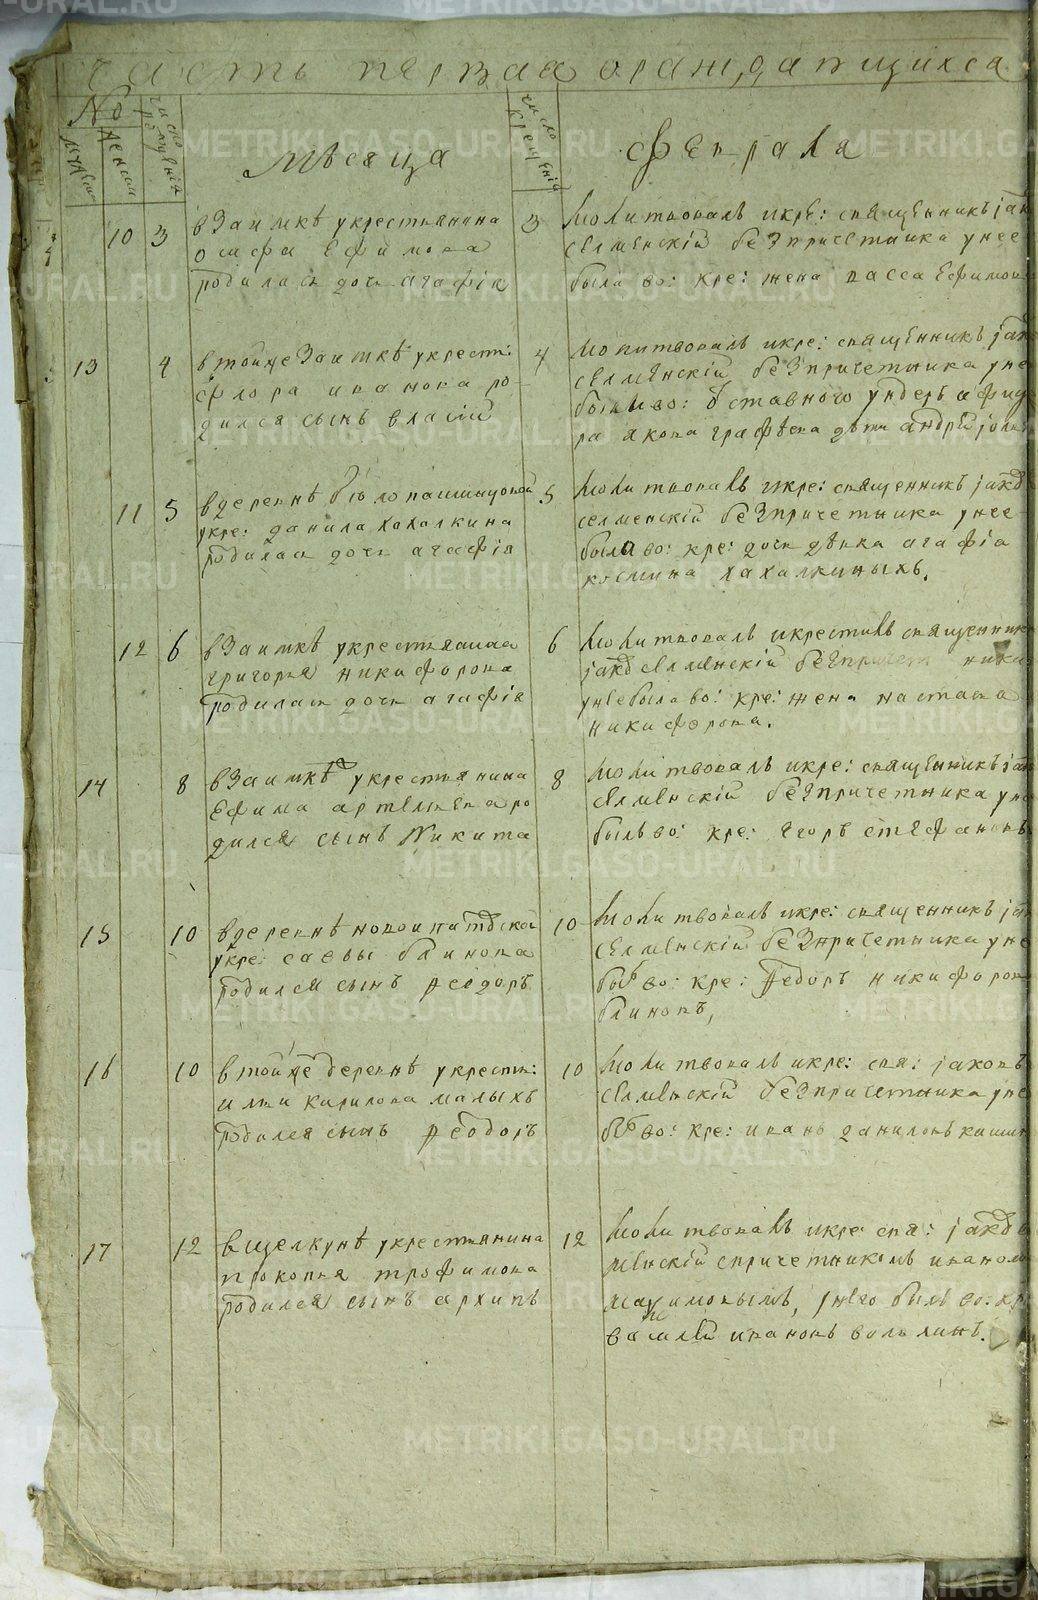 часть первая о раждающихся
№
мужеска
женска
число рождения
мѣсяца
число крещенія
февраля
10 3 в Заимкѣ у крестьянина
осифа Ефимова
родилась дочь агафія
3 молитвовалъ и кре: священникъ
селменскій без причетника у нее
была во: кре: жена васса Ефимов
13 4 в той же Заимкѣ у крест:
флора иванова ро-
дился сынъ власій
4 молитвовалъ и кре: священникъ
селменскій без причетника у не
были во: отставного ундеръ афиц
ра якова дѣти андрей
11 5 в деревнѣ
у кре: данила хахалкина
родилась дочь агафія
5 молитвовалъ и кре: священникъ
селменскій без причетника у нее
была во: кре: дочь дѣвка агафіа
космина хахалкиныхъ.
12 6 в Заимкѣ у крестьянина
григорья никифорова
родилась дочь агафія
6 молитвовалъ и крестилъ священник
селменскій без причет ника
у нее была во: кре: жена настасья
никифорова.
14 8 в Заимкѣ у крестьянина
Ефима артемьева ро
дился сынъ Никита
8 молитвовалъ и кре: священникъ
селменскій без причетника у не
былъ во: кре: егоръ стефановъ
15 10 в деревнѣ новоипатовской
у кре: савы блинова
родился сынъ феодоръ
10 молитвовалъ и кре: священникъ
селменскій без причетника у не
бы во: кре: федоръ никифоров
блиновъ,
16 10 в той же деревнѣ у крест:
ильи кирилова малыхъ
родился сынъ феодоръ
10 молитвовалъ и кре: свя: јаковъ
селменскій без причетника у не
бы во: кре: иванъ даниловъ
17 12 в щелкунѣ у крестьянина
прокопья трофимова
родился сынъ архипъ
12 молитвовалъ и кре свя:
менскій с причетникомъ иваном
максимовымъ, у него былъ во: кр
василей ивановъ
METRIKI.GASO-URAL.RU